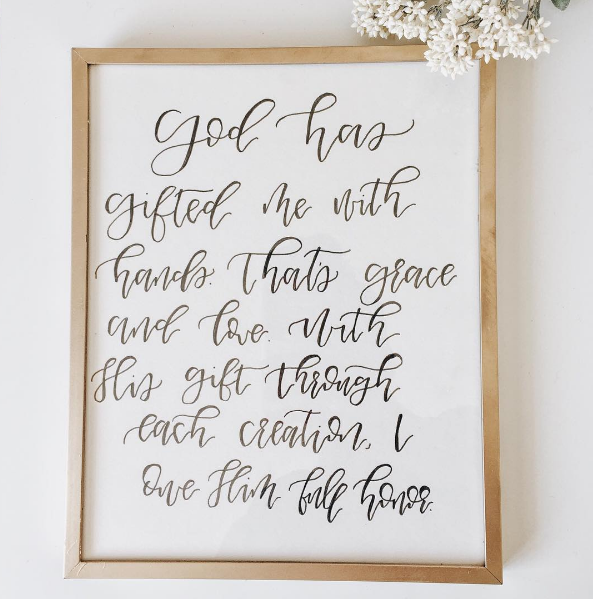 God has
gifted me with
hands. That's grace
and love. With
His gift through
each creation, I
owe Him full honor.